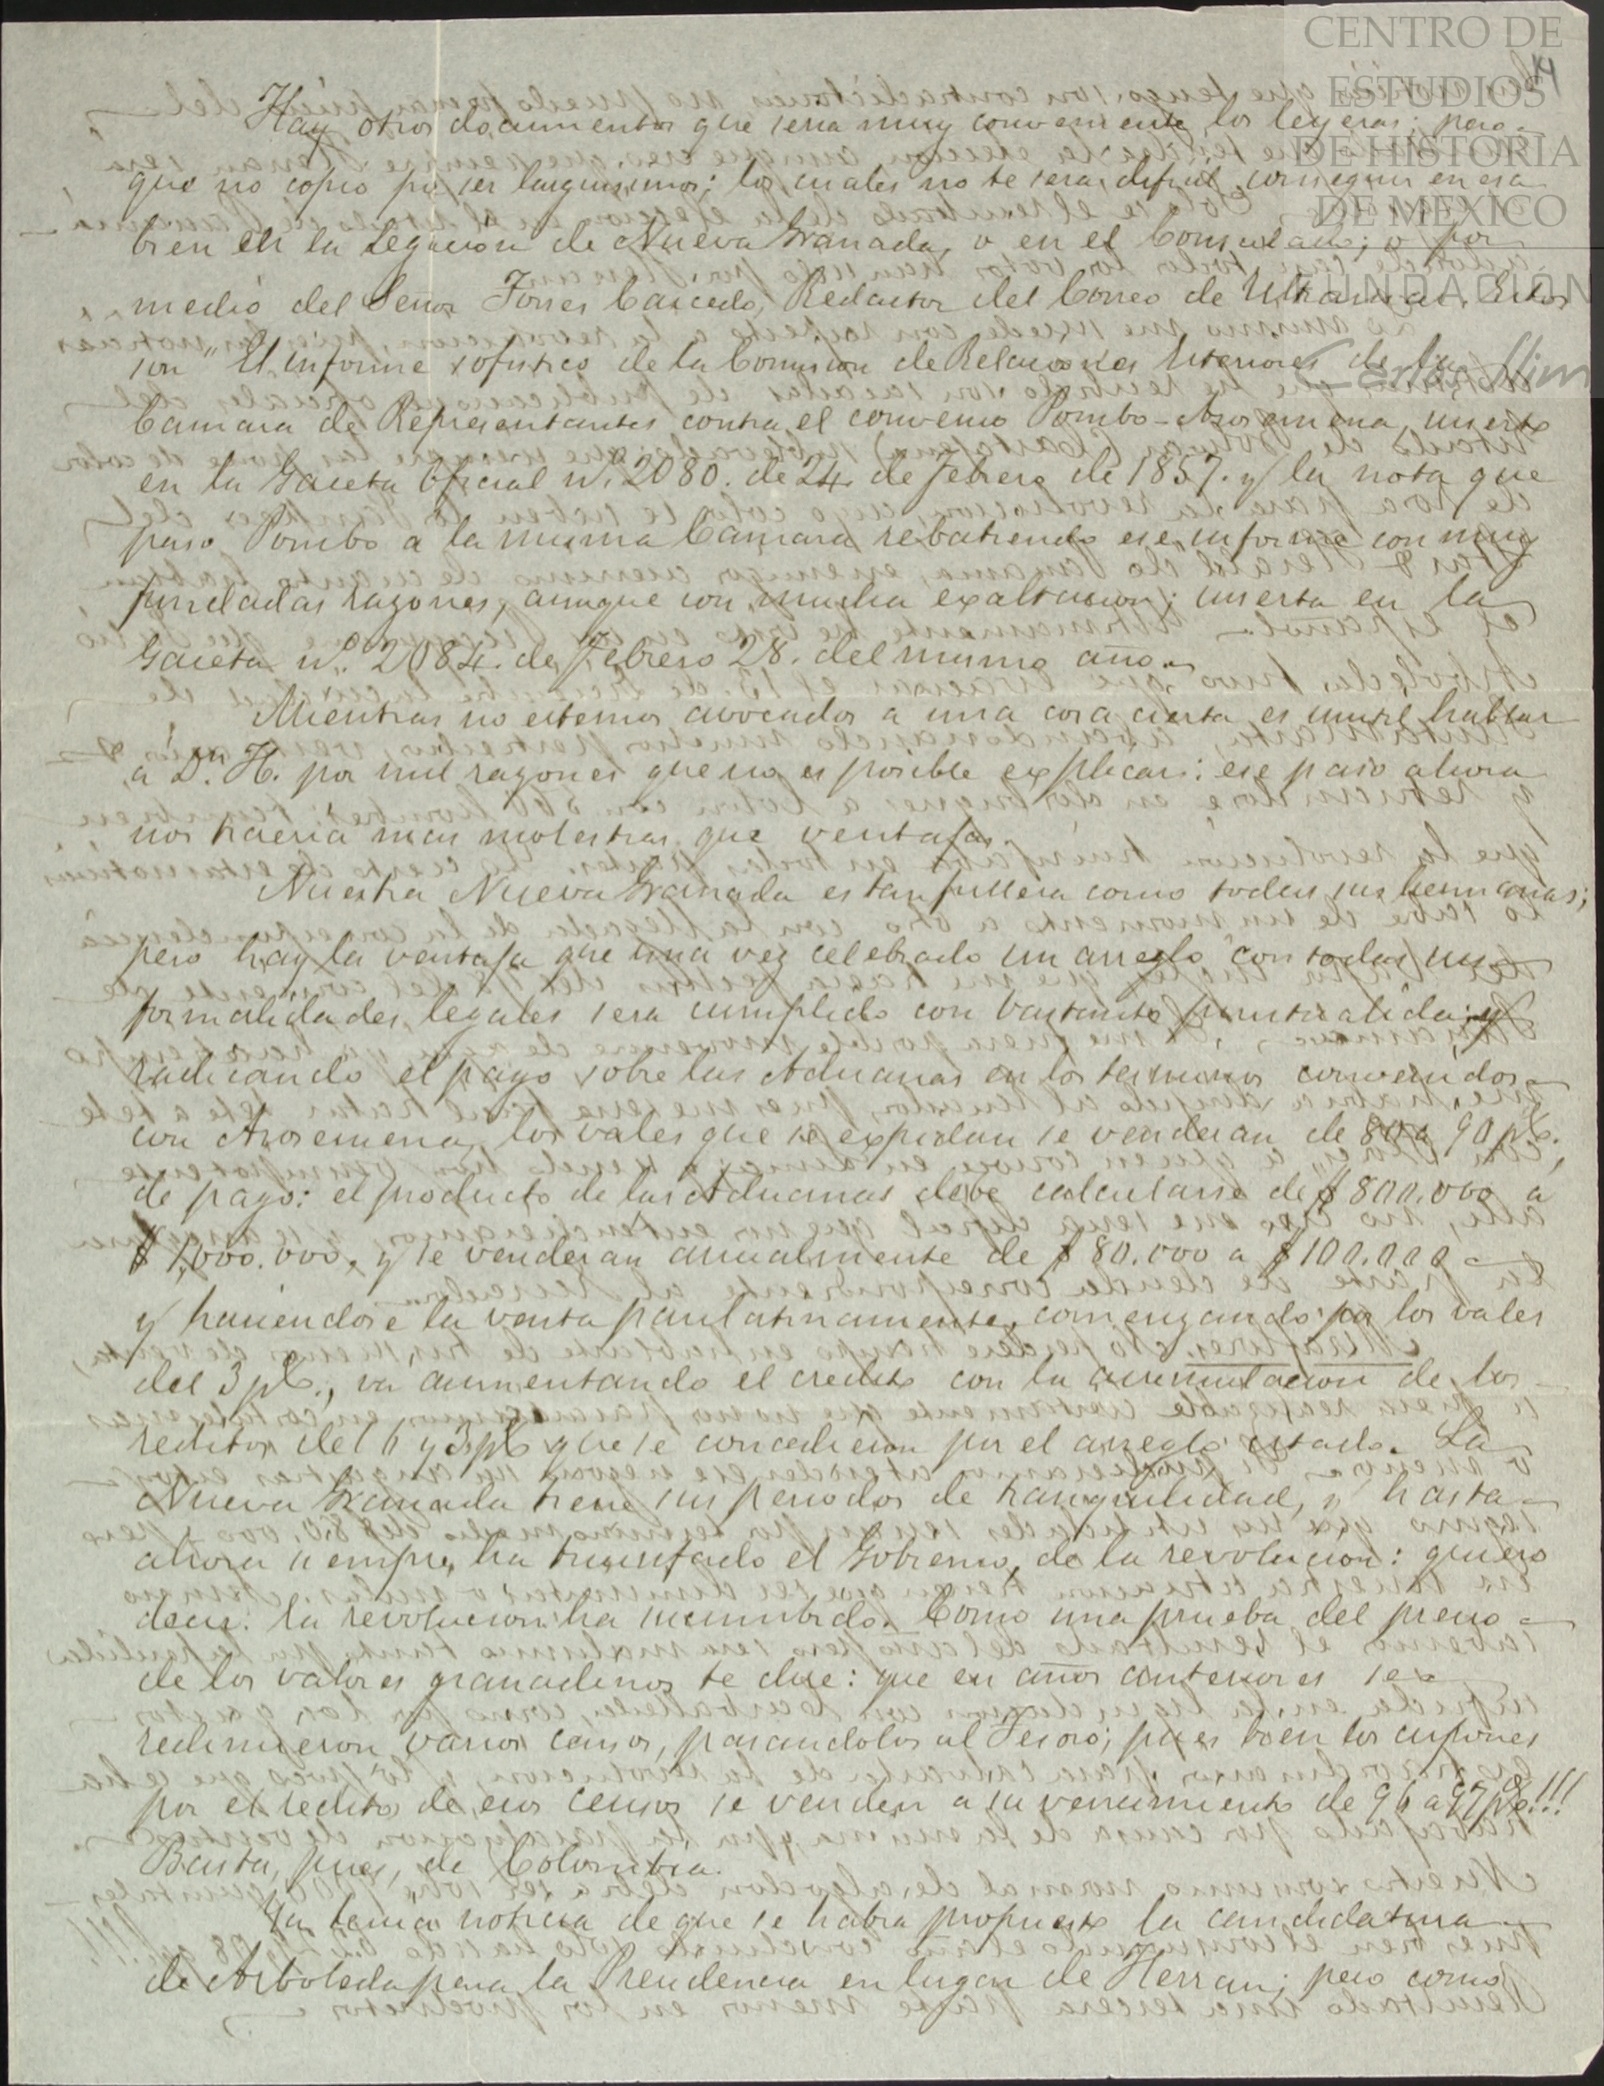 CENTRO DE
ESTUDIOS
DE HISTORIA
DE MEXICO
FUNDACIÓN
Carlos Slim
14
Hay otros documentos que seria muy conveniente los leyeras; pero
que no copio por ser larguisimos; los cuales no te sera dificil conseguir en esa
bien en la Legacion de Nueva Granada, o en el Consulado; o por
medio del Señor Torres Caicedo, Redactor del Correo de Ultramar. Estos
son "El informe sofistico de la Comision de Relaciones Exteriores de la
Camara de Representantes contra el convenio Pombo-Arosemena, inserto
en la Gaceta Oficial nº. 2080. de 24. de Febrero de 1857. y la nota que
paso Pombo a la misma Camara rebatiendo ese informe con muy
fundadas razones, aunque con mucha exaltacion; inserta en la
Gaceta nº. 2084. de Febrero 28. del mismo año.
Mientras no estemos avocados a una cosa cierta es inutil hablar
á Dn. H. por mil razones que no es posible explicar: ese paso ahora
nos traeria mas molestias que ventajas.
Nuestra Nueva Granada es tan fullera como todas sus hermanas;
pero hay la ventaja que una vez celebrado un arreglo con todas sus
formalidades legales sera cumplido con bastante puntualidad y
radicando el pago sobre las Aduanas en los terminos convenidos
con Arosemena, los vales que se expidan se venderan de 80 a 90 p%.
de pago: el producto de las Aduanas debe calcularse de $800.000 a
$1,000.000, y se venderan anualmente de $80.000 a $100.000
y haciendose la venta paulatinamente, comenzando por los vales
del 3 p%., va aumentando el credito con la acumulacion de los
reditos del 6 y 3 p% que se concedieron por el arreglo citado. La
Nueva Granada tiene sus periodos de tranquilidad, y hasta
ahora siempre ha triunfado el Gobierno, de la revolucion: quiero
decir: la revolucion ha sucumbido. Como una prueba del precio
de los valores granadinos te dire: que en años anteriores se
redimieron varios censos, pasandolos al Tesoro; pues bien los cupones
por el redito de esos censos se venden a su vencimiento de 96 a 97 p%!!!
Basta, pues, de Colombia.
Ya tenia noticia de que se habia propuesto la candidatura
de Arboleda para la Presidencia en lugar de Herran; pero como